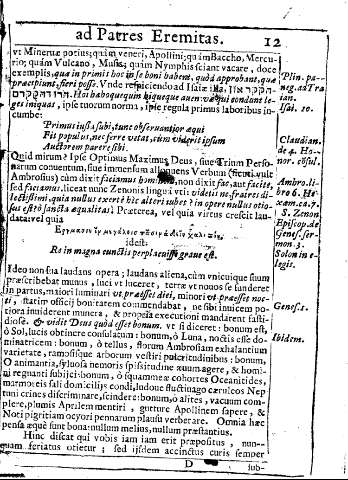 ad Patres Eremitas. 12
vt Minervæ potius; quàm veneri, Apollini; quàm Baccho, Mercurio;
quàm Vulcano, Musis; quàm Nymphis sciant vacare, doce
exemplis, qua in primis hoc in se boni habent, quòd approbant, quæ
præcipiunt, fieri posse. Vnde respiciendo ad Isaiæ
iniquas, ipse tuorum norma, ipse regula primus laboribus incumbe:
Primus iussa subi, tunc observantior æqui
Fit populus, nec ferre vetat, cùm viderit ipsum
Auctorem parere sibi.
Quid mirum? Ipse Optimus Maximus Deus, sive Trium Personarum
conventum, sive immensum alloquens Verbum (sicuti vult
Ambrosius) cùm dixit faciamus hominem, non dixit fac, aut facite,
sed faciamus. liceat nunc Zenonis lingua vti: videtis ne fratres dilectissimi,
quia nullus exerit hîc alteri iubet? in opere nullus otiosus
est? ô sancta æqualitas! Præterea, vel quia virtus crescit laudata;
vel quia
idest:
Re in magna cunctis perplacuisse grave est.
Ideo non sua laudans opera; laudans aliena, cùm vnicuique suum
præscribebat munus, luci vt luceret, terræ vt nouos se funderet
in partus, maiori luminari vt præesset diei, minori vt præesset nocti,
statim officij bonitatem commendabat, ne sibi inuicem potiora
inuiderent munera, & propria executioni mandarent fastidiose.
& vidit Deus quòd esset bonum. vt si diceret: bonum est,
ô Sol, lucis obtinere consulatum: bonum, ô Luna, noctis esse dominatricem:
bonum, ô tellus, florum Ambrosiam exhalantium
varietate, ramosisque arborum vestiri pulcritudinibus: bonum,
O animantia, syluosa nemoris spissitudine æuum agere, & homini
regnanti subijci: bonum, ô squammeæ cohortes Oceanitides,
marmoreis sali domicilijs condi, Indoue fluctiuago cæruleos Neptuni
crines discriminare, scindere: bonum, ô alites, vacuum complere,
plumis Aprilem mentiri, gutture Apollinem sapere, &
Noti pigritiam ocyori pennarum plausu verberare. Omnia hæc
pensa æquè sunt bona: nullum melius, nullum præstantius.
Hinc discat qui vobis iam iam erit præpositus, nunquam
feriatus otietur; sed ijsdem accinctus curis semper
D sub-
Plin. paneg.
ad Traian.
Isai. 10.
Claudian.
de 4. Honor.
cösul.
Ambros. li
bro 6. Hexam.
ca. 7.
S. Zenon
Episcop. de
Genes. sermon
3.
Solon in elegis.
Genes. 1.
Ibidem.